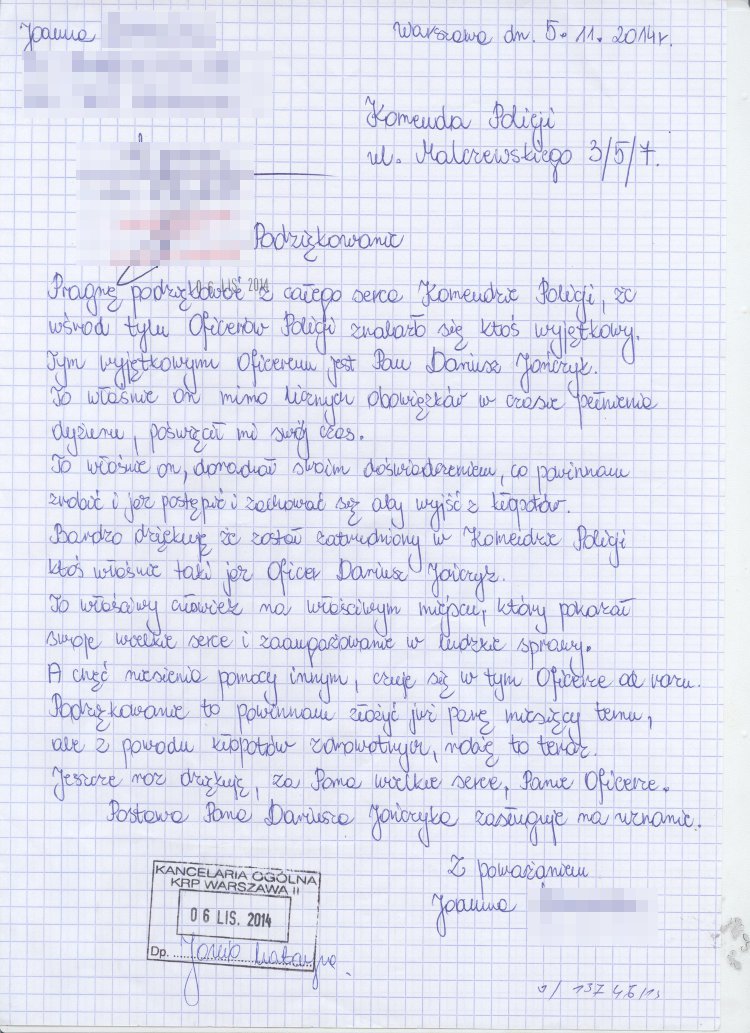 Joanna
Warszawa dn. 5.11.2014r.
Komenda Policji
ul. Malczewskiego 3/5/7.
Podziękowanie
Pragnę podziękować z całego serca Komendzie Policji, że
06 LIS. 2014
wśród tylu Oficerów Policji znalazło się ktoś wyjątkowy.
Tym wyjątkowym Oficerem jest Pan Dariusz Jończyk.
To właśnie on mimo licznych obowiązków w czasie pełnienia
dyżuru, poświęcił mi swój czas.
To właśnie on, doradzał swoim doświadczeniem, co powinnam
zrobić i jak postąpić i zachować się aby wyjść z kłopotów.
Bardzo dziękuję że został zatrudniony w Komendzie Policji
ktoś właśnie taki jak Oficer Dariusz Jończyk.
To właściwy człowiek na właściwym miejscu, który pokazał
swoje wielkie serce i zaangażowanie w ludzkie sprawy.
A chęć niesienia pomocy innym, czuje się w tym Oficerze od razu.
Podziękowanie to powinnam złożyć już parę miesięcy temu,
ale z powodu kłopotów zdrowotnych, robię to teraz.
Jeszcze raz dziękuję, za Pana wielkie serce, Panie Oficerze.
Postawa Pana Dariusza Jończyka zasługuje na uznanie.
Z poważaniem
Joanna
KANCELARIA OGÓLNA
KRP WARSZAWA II
06 LIS. 2014
Dp.